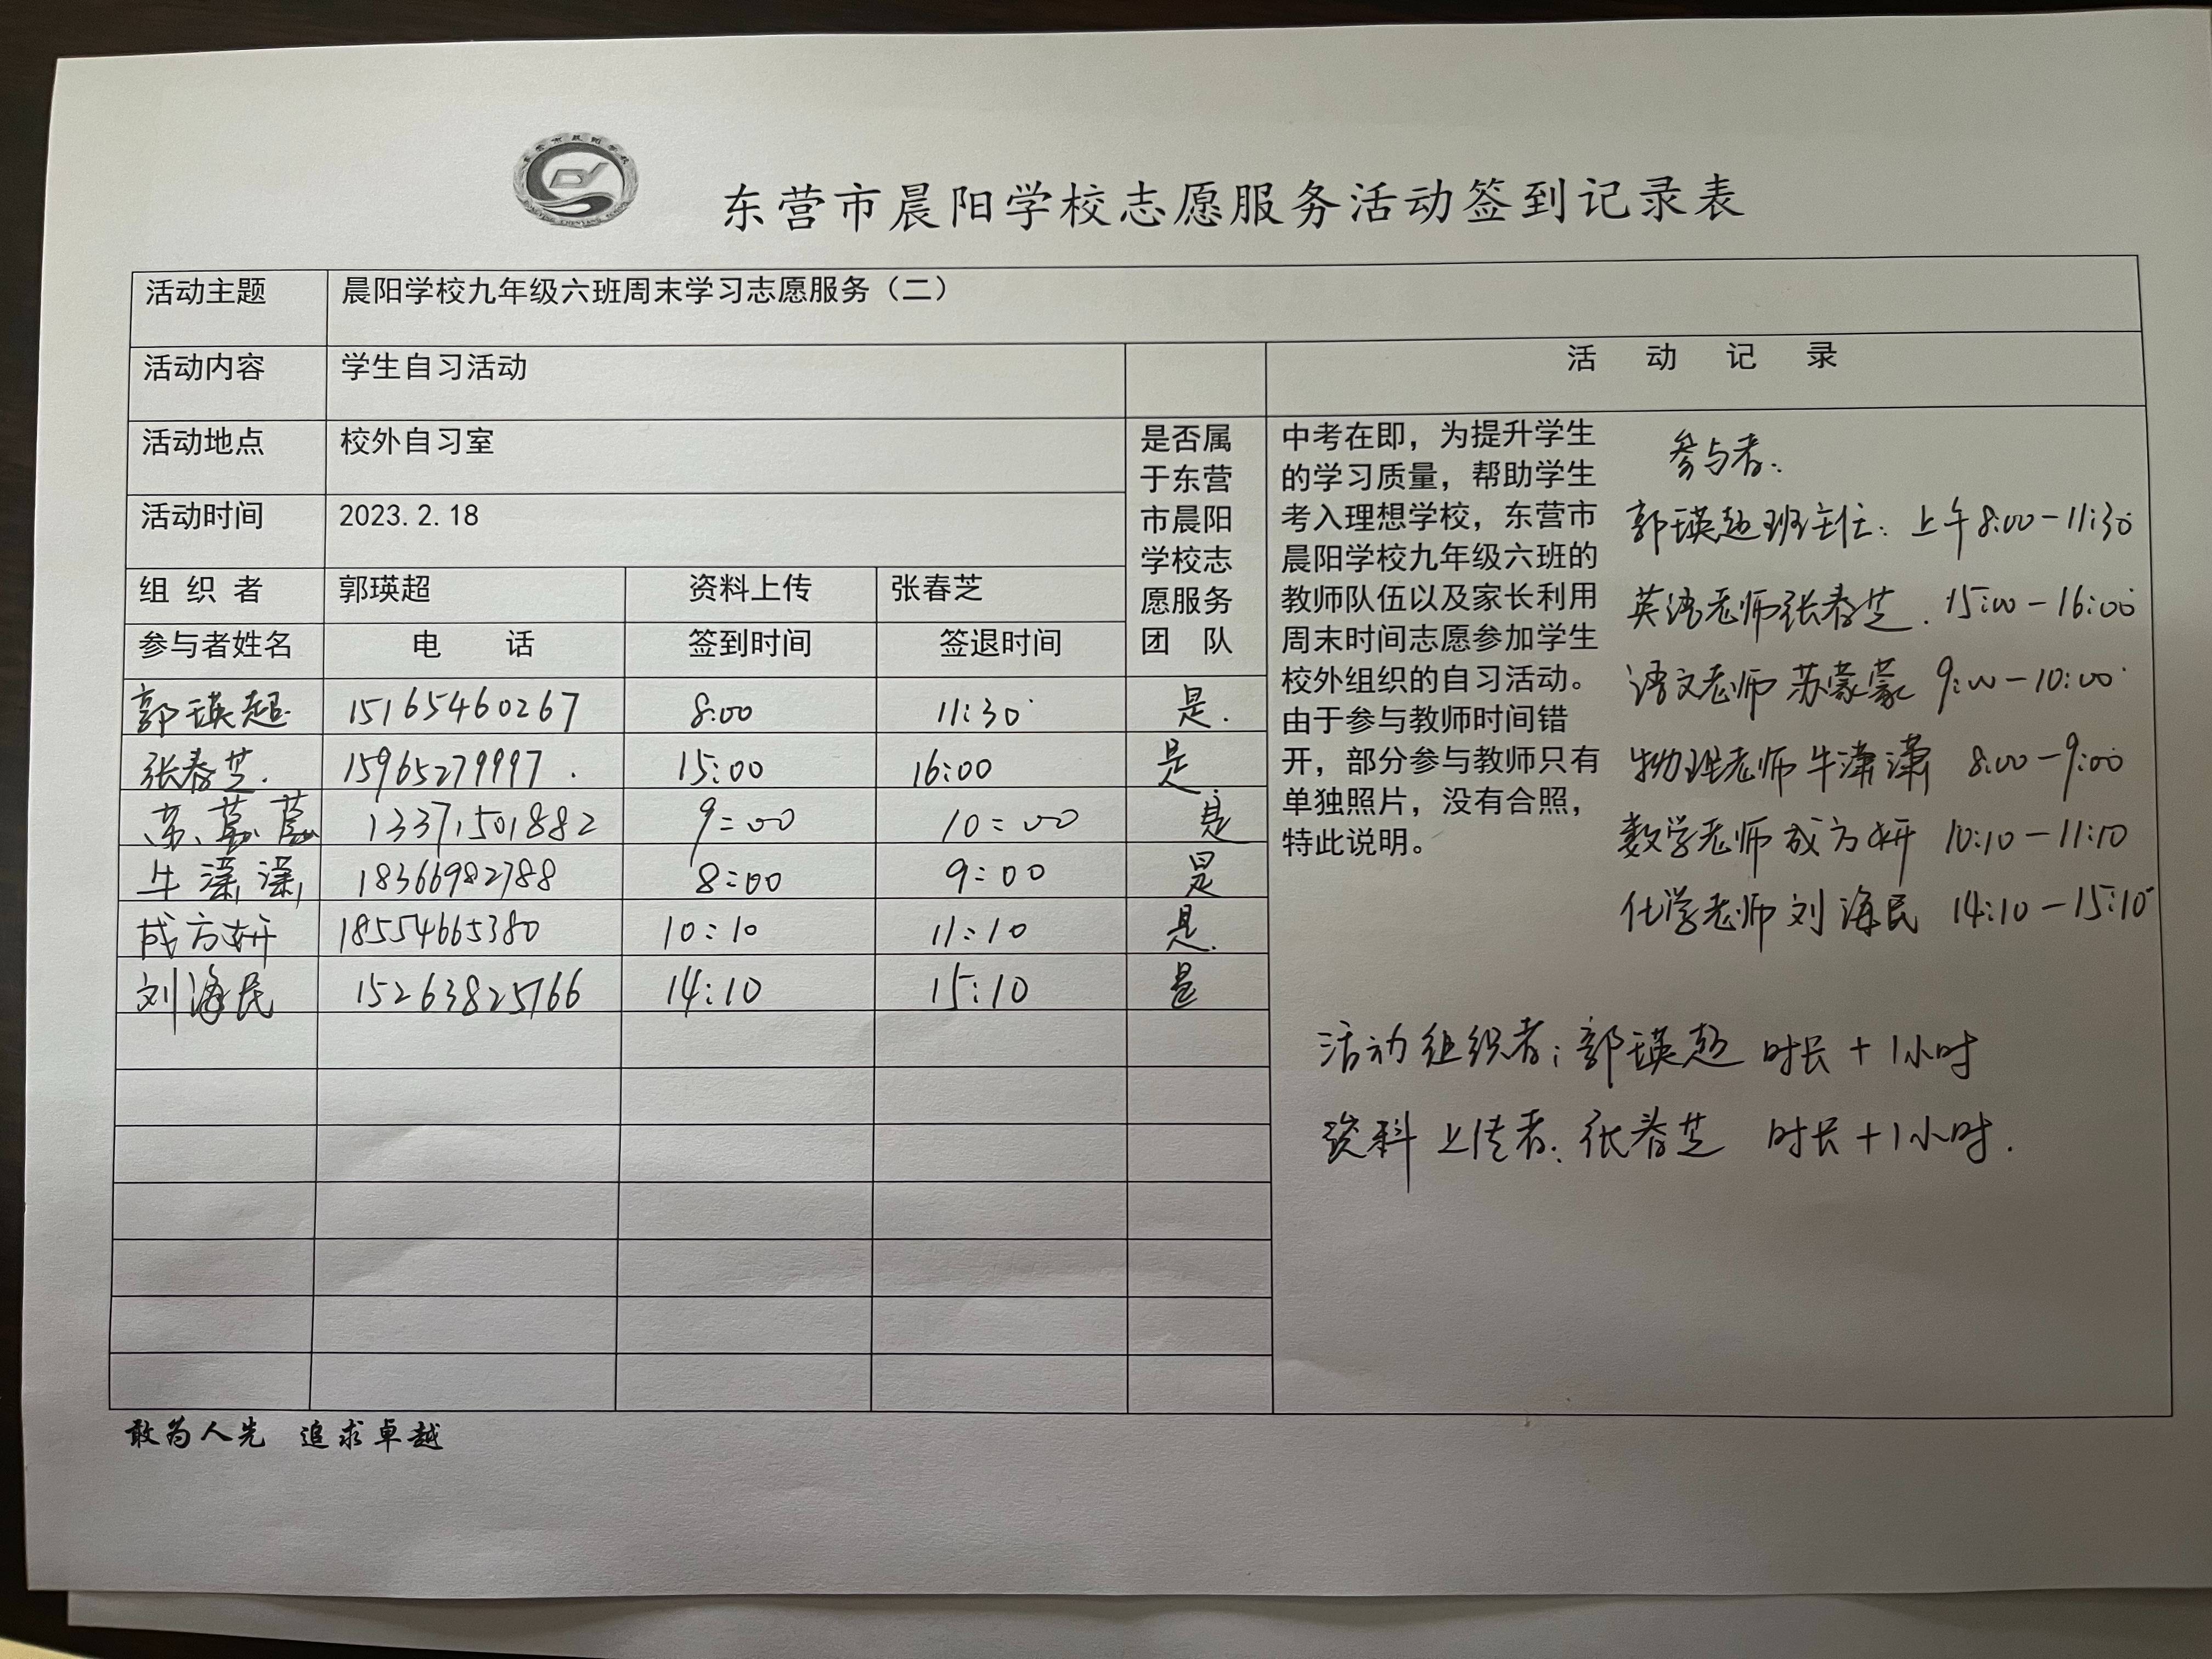 东营市晨阳学校志愿服务活动签到记录表
活动主题 晨阳学校九年级六班周末学习志愿服务（二）
活动内容 学生自习活动
活动地点 校外自习室
活动时间 2023.2.18
组 织 者 郭瑛超 资料上传 张春芝
参与者姓名 电 话 签到时间 签退时间
是否属
于东营
市晨阳
学校志
愿服务
团 队
郭瑛超 15165460267 8:00 11:30 是.
张春芝. 15965279997. 15:00 16:00 是.
苏蒙蒙 13371501882 9:00 10:00 是
牛潇潇 18366982788 8:00 9:00 是
成方妍 18554665380 10:10 11:10 是.
刘海民 15263825766 14:10 15:10 是
活 动 记 录
中考在即，为提升学生
的学习质量，帮助学生
考入理想学校，东营市
晨阳学校九年级六班的
教师队伍以及家长利用
周末时间志愿参加学生
校外组织的自习活动。
由于参与教师时间错
开，部分参与教师只有
单独照片，没有合照，
特此说明。
参与者:
郭瑛超班主任: 上午8:00-11:30
英语老师张春芝. 15:00-16:00
语文老师 苏蒙蒙 9:00-10:00
物理老师 牛潇潇 8:00-9:00
数学老师 成方妍 10:10-11:10
化学老师 刘海民 14:10-15:10
活动组织者: 郭瑛超 时长+1小时
资料上传者: 张春芝 时长+1小时.
敢为人先 追求卓越